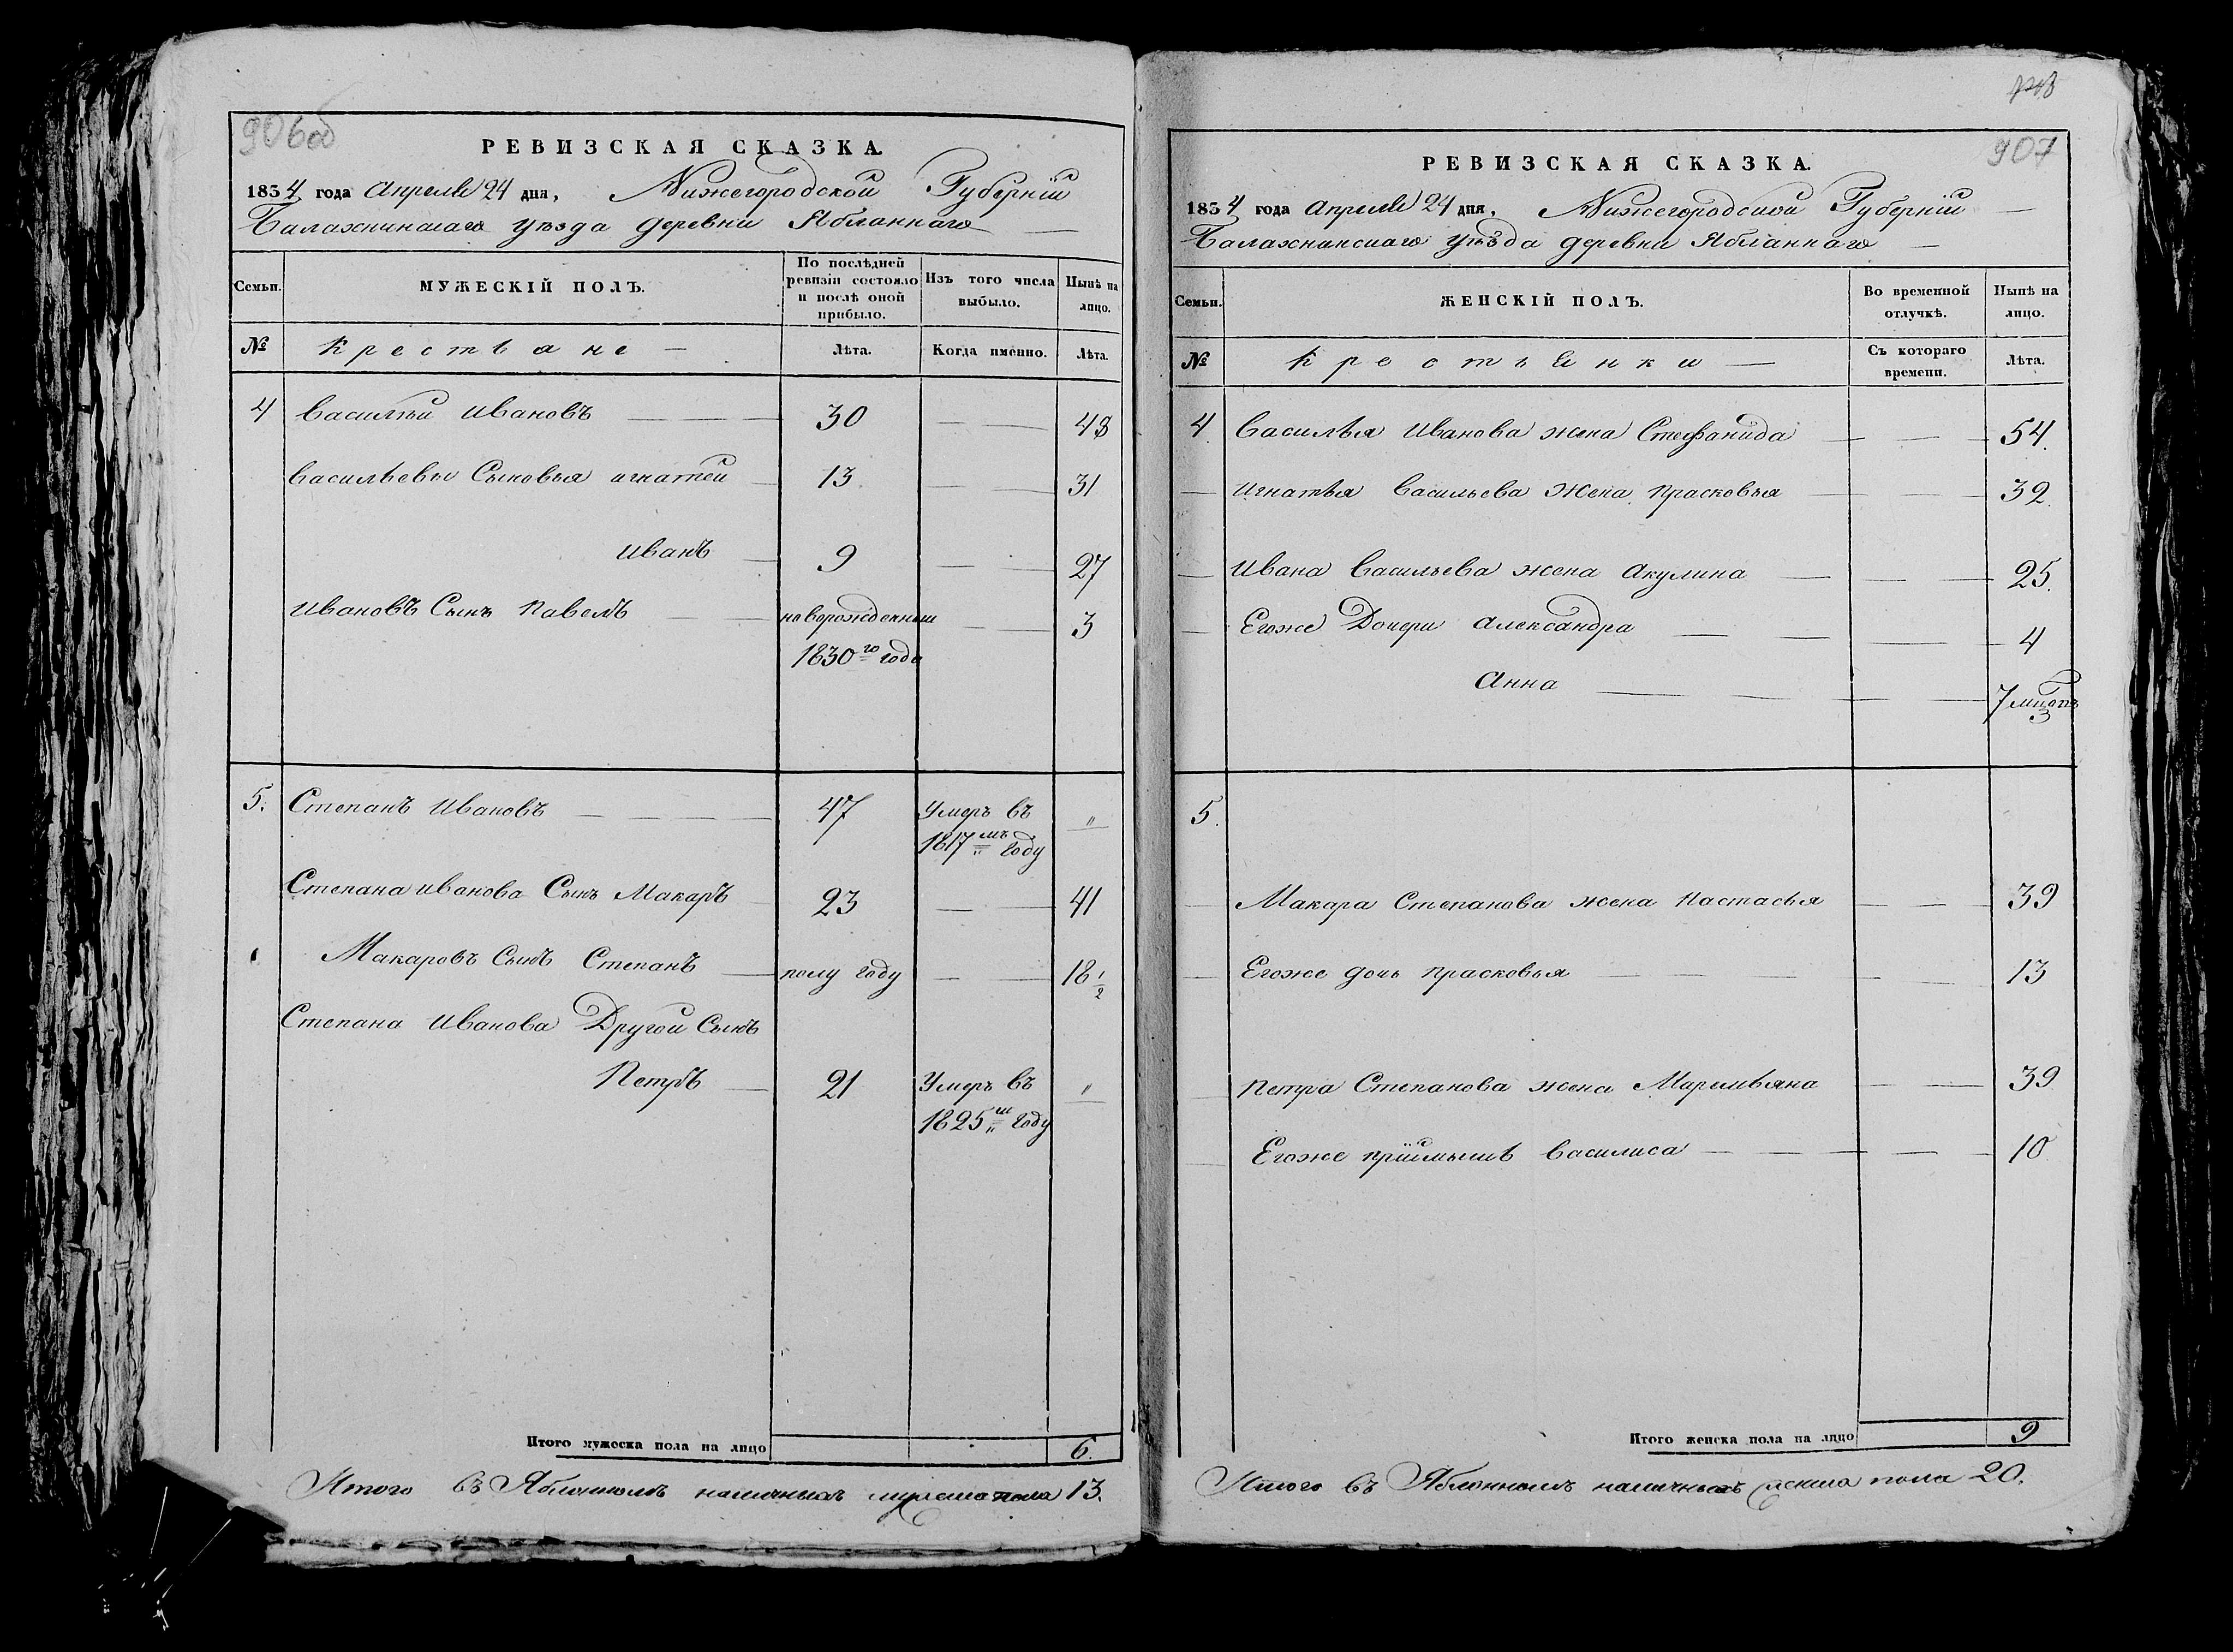 906об
РЕВИЗСКАЯ СКАЗКА.
1834 года Апреля 24 дня, Нижегородской Губернiи
Балахнинскаго уѣзда деревни Яблоннаго
Семьи.
МУЖЕСКIЙ ПОЛЪ.
По послѣдней ревизiи состояло и послѣ оной прибыло.
Изъ того числа выбыло.
Нынѣ на лицо.
№ Крестьяне Лѣта. Когда именно. Лѣта.
4 Василей Ивановъ 30 48
Васильевы Сыновья Игнатей 13 31
Иванъ 9 27
Ивановъ Сынъ Павелъ новорожденный 3
1830го года
5. Степанъ Ивановъ 47 Умеръ въ "
1817мъ Году
Степана Иванова Сынъ Макаръ 23 41
Макаровъ Сынъ Степанъ полу году 18 1/2
Степана Иванова Другой Сынъ
Петръ 21 Умеръ въ "
1825м Году
Итого мужеска пола на лицо 6.
Итого въ Яблонномъ наличныхъ мужеска пола 13.
907
РЕВИЗСКАЯ СКАЗКА.
1834 года Апреля 24 дня, Нижегородской Губернiи
Балахнинскаго уѣзда деревни Яблоннаго
Семьи.
ЖЕНСКIЙ ПОЛЪ.
Во временной отлучкѣ.
Нынѣ на лицо.
№ Крестьянки Съ котораго времени. Лѣта.
4. Василья Иванова жена Стефанида 54.
Игнатья Васильева Жена Прасковья 32.
Ивана Васильева жена Акулина 25.
Егоже Дочери Александра 4
Анна 7
5.
Макара Степанова жена Настасья 39
Егоже дочь Прасковья 13
Петра Степанова жена Маремьяна 39
Егоже прiимышъ Василиса 10
Итого женска пола на лицо 9
Итого въ Яблонномъ наличныхъ женска пола 20.